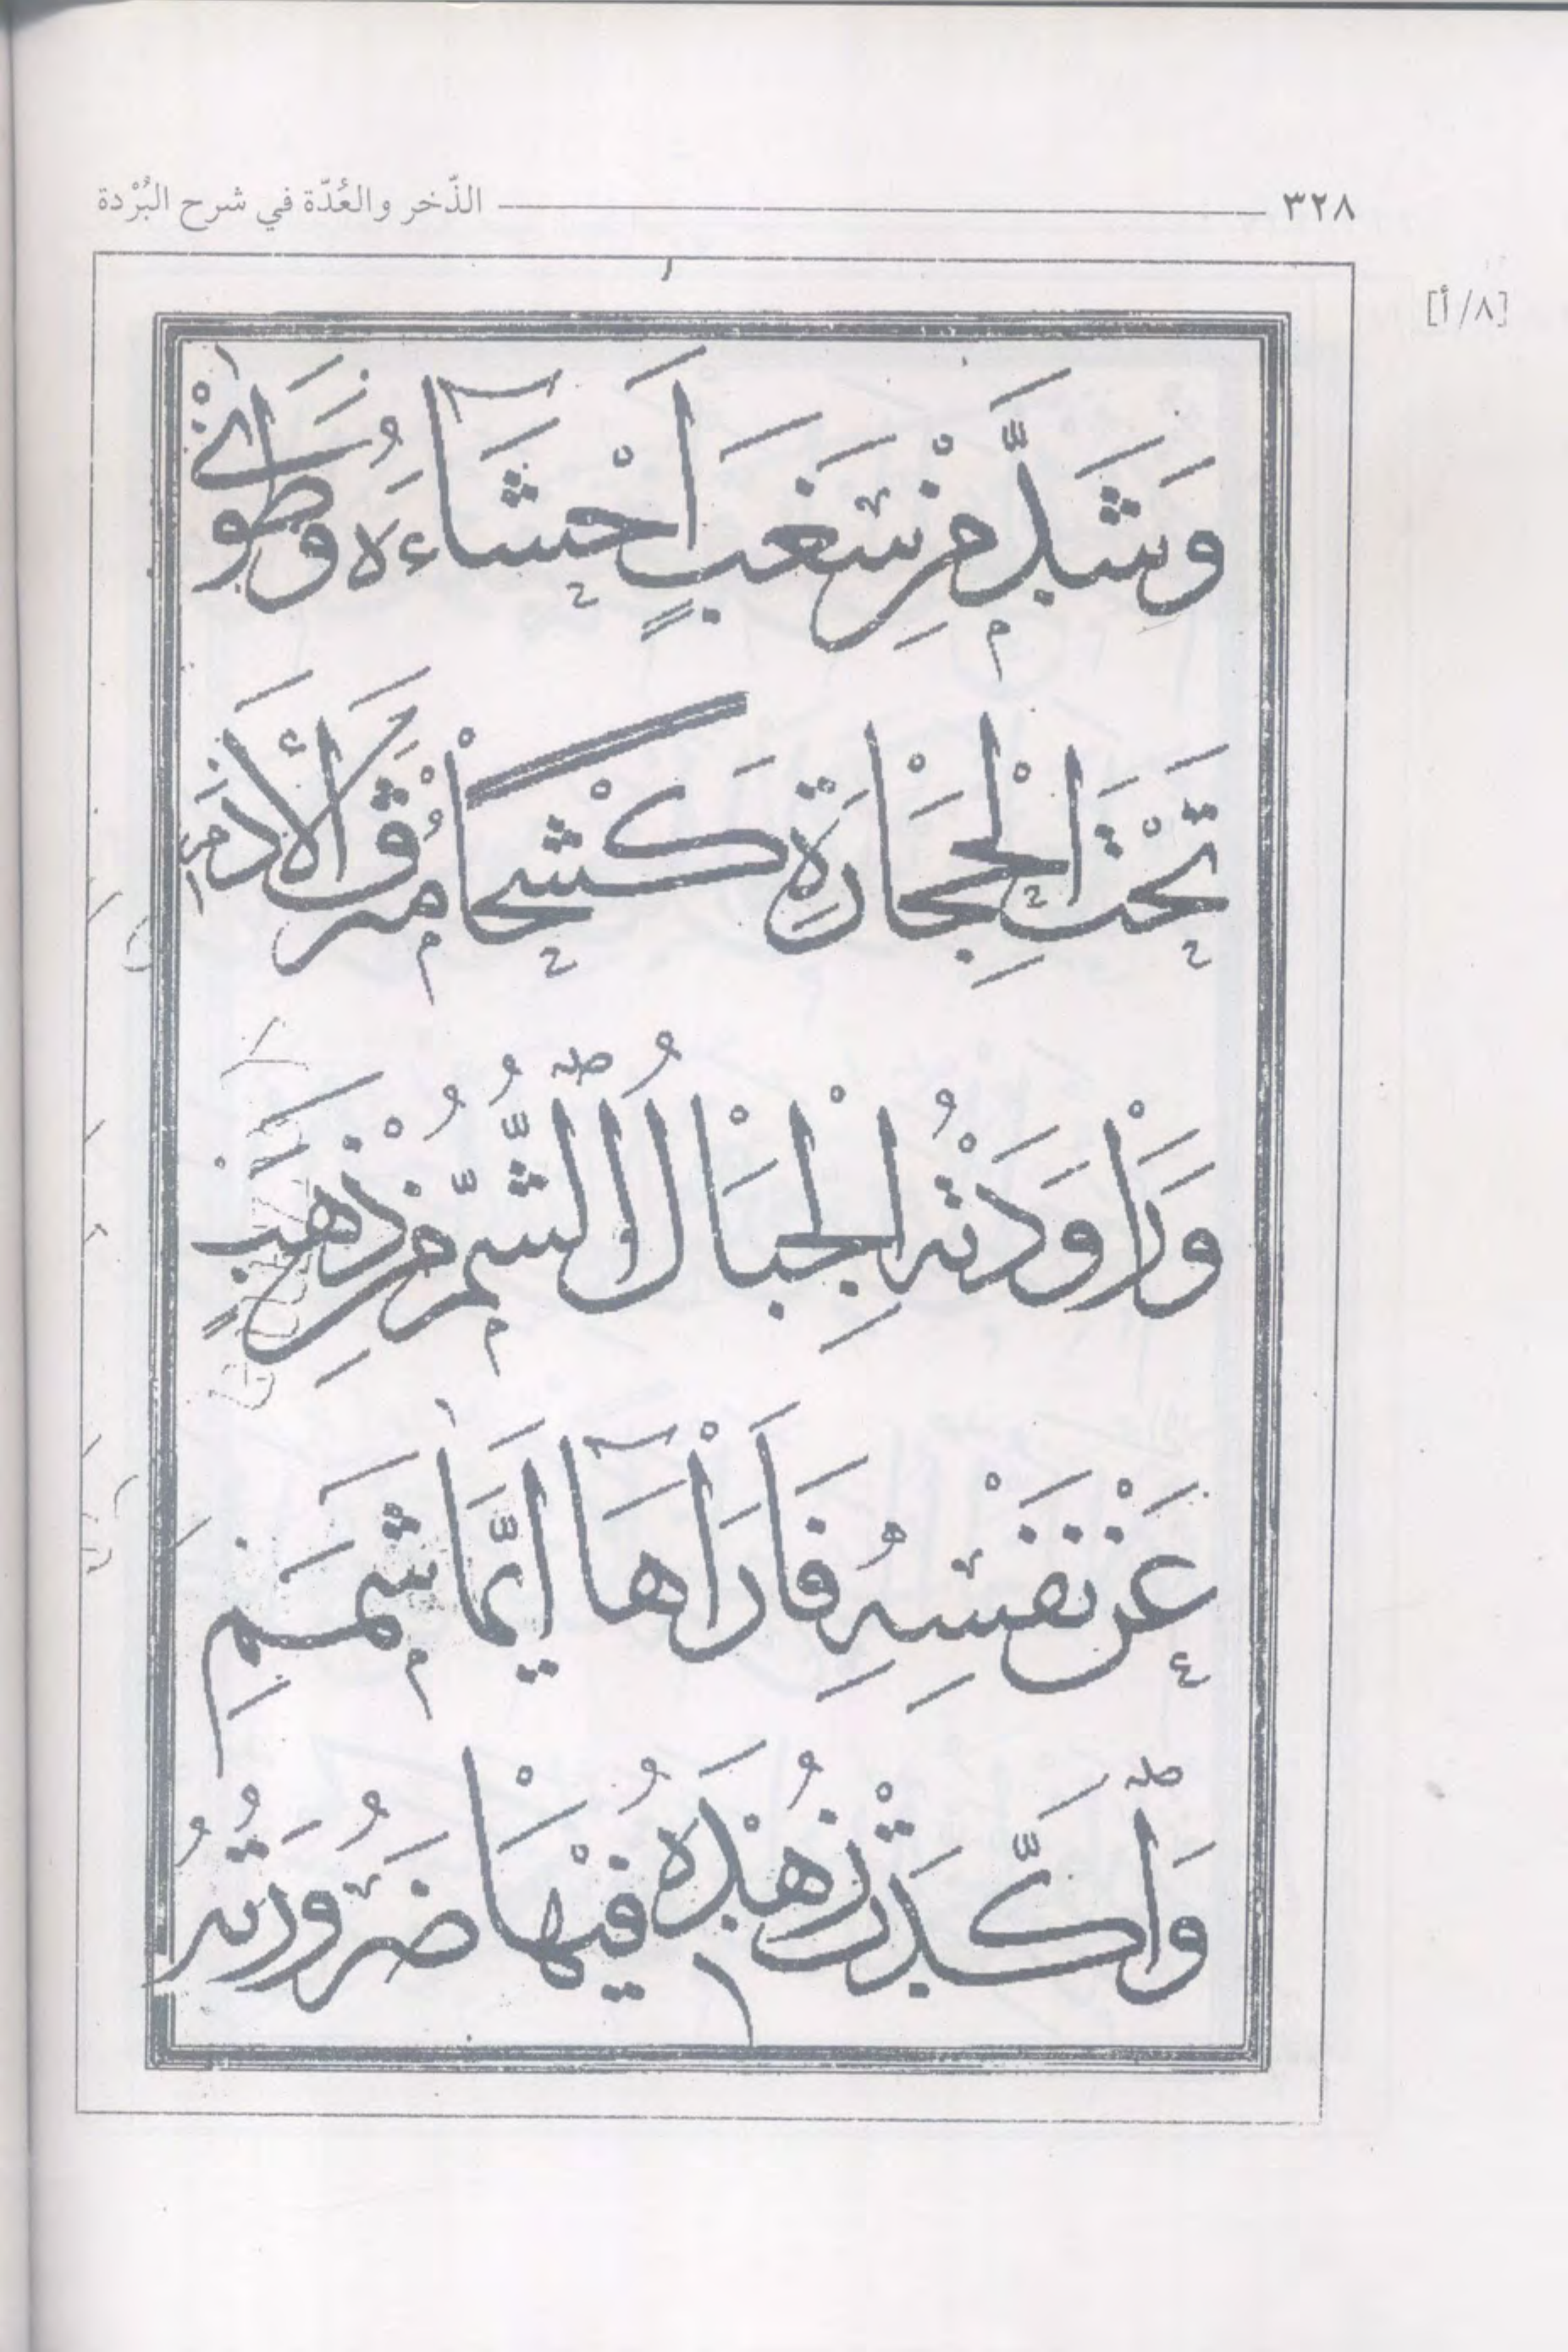 ٣٢٨ الذّخر والعُدّة في شرح البُرْدة
[٨/ أ]
وَشَدَّ مِنْ سَغَبٍ اَحْشَآءَهُ وَطَوٰى
تَحْتَ الْحِجَارَةِ كَشْحاً مُتْرَفَ الْأَدَمِ
وَرَاوَدَتْهُ الْجِبَالُ الشُّمُّ مِنْ ذَهَبٍ
عَنْ نَفْسِهِ فَاَرَاهَآ اَيَّمَا شَمَمِ
وَاَكَّدَتْ زُهْدَهُ فِيْهَا ضَرُورَتُهُ